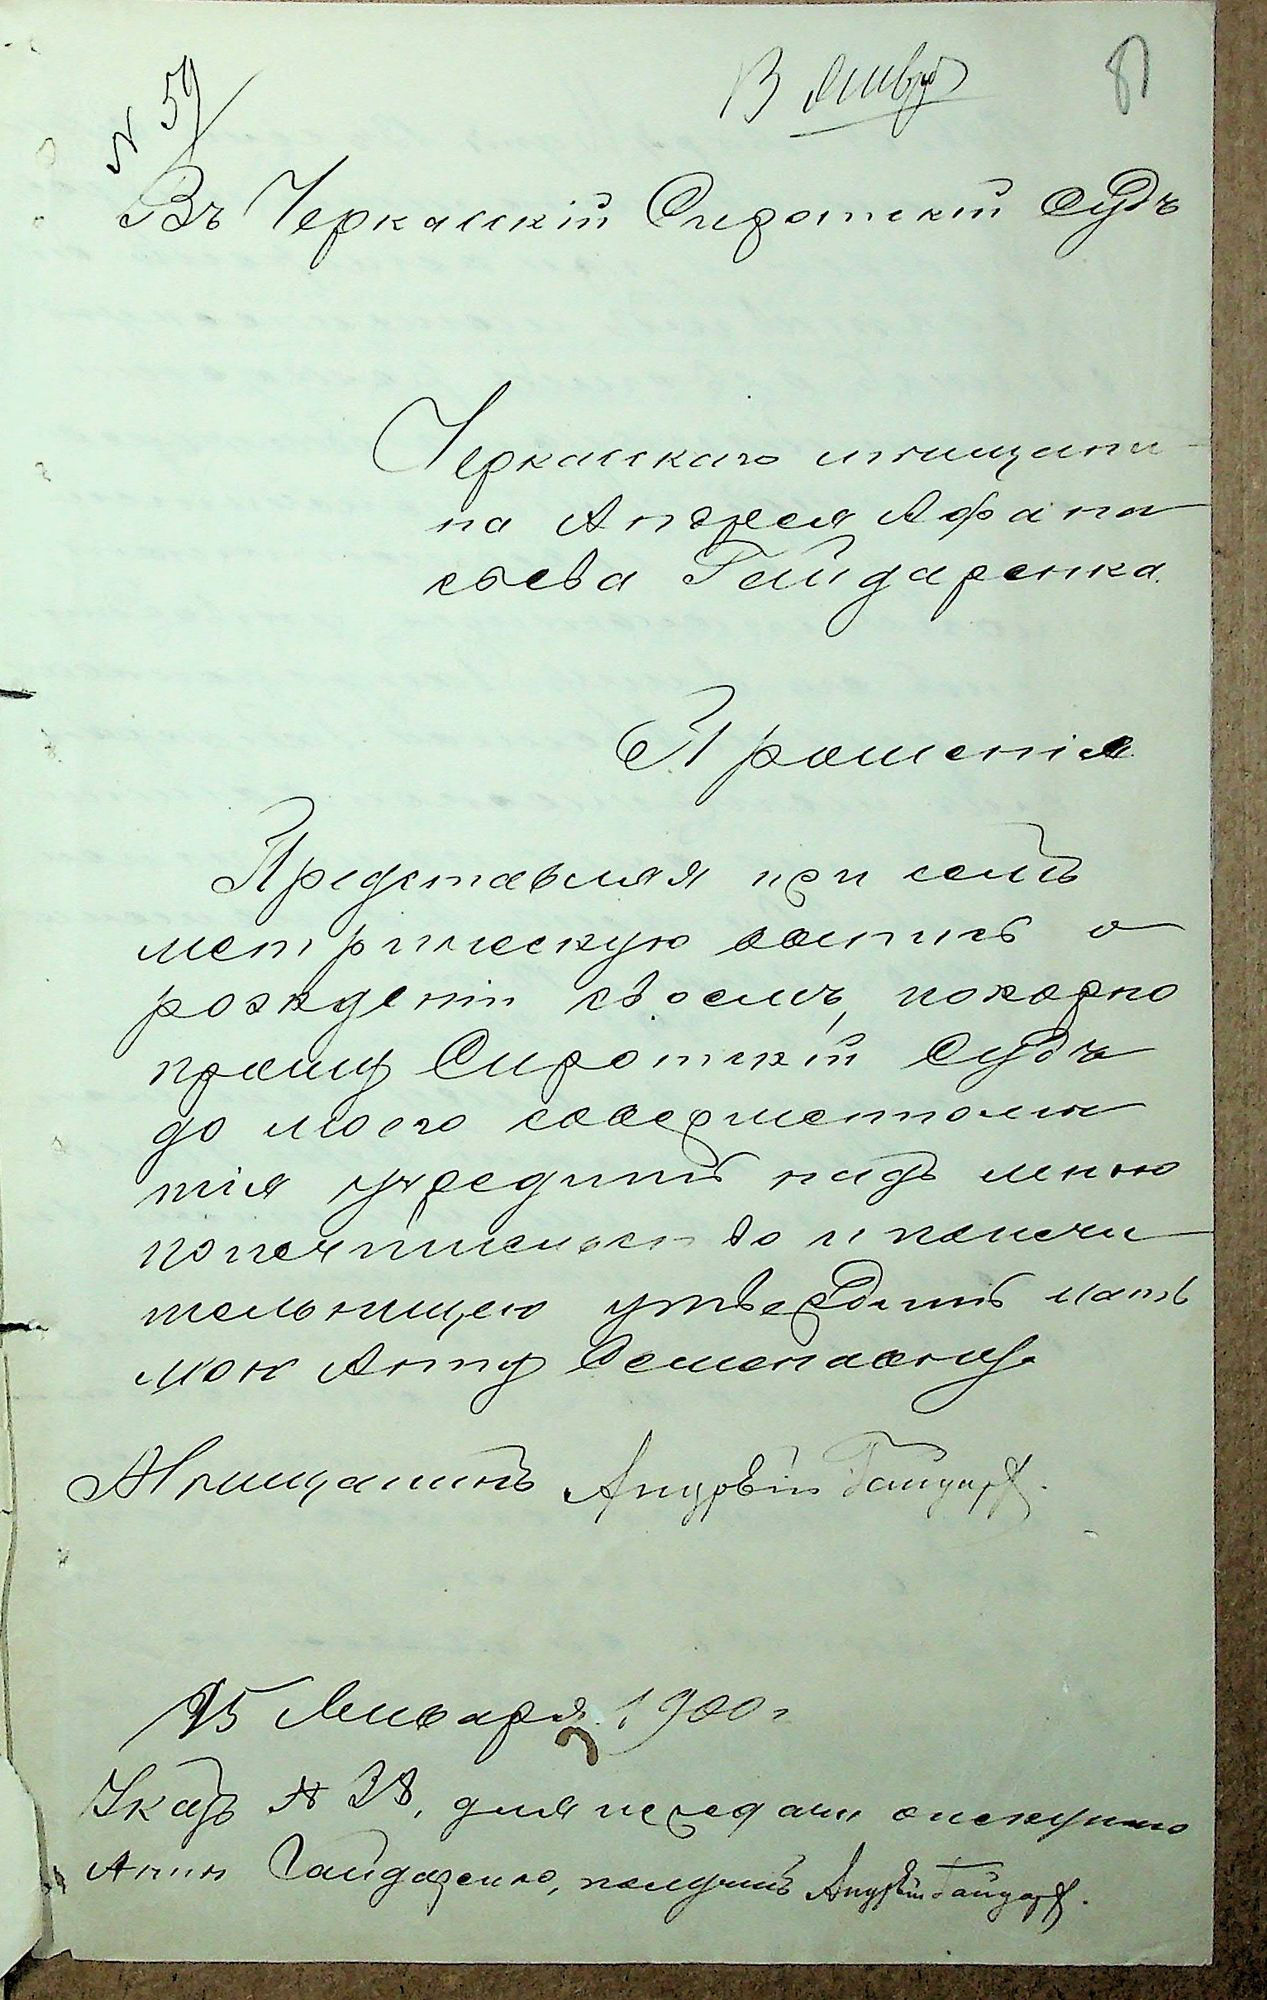 N 59
13 Январ
87
Въ Черкасскій Сиротскій Судъ
Черкасскаго мѣщани-
на Андрея Афана
сьева Гайдаренка.
Прошеніе
Представляя при семъ
метрическую выпись о
рожденіи своемъ, покорно
прошу Сиротскій Судъ
до моего совершеннолѣ
тія учредить надъ мною
попечительство и попечи
тельницею утвердить мать
мою Анну Семеновну.
Мѣщанинъ Андрѣй Гайдар.
15 Января 1900 г
Указъ N 38, для передачи опекуншѣ
Аннѣ Гайдаренко, получилъ Андрѣй Гайдар.